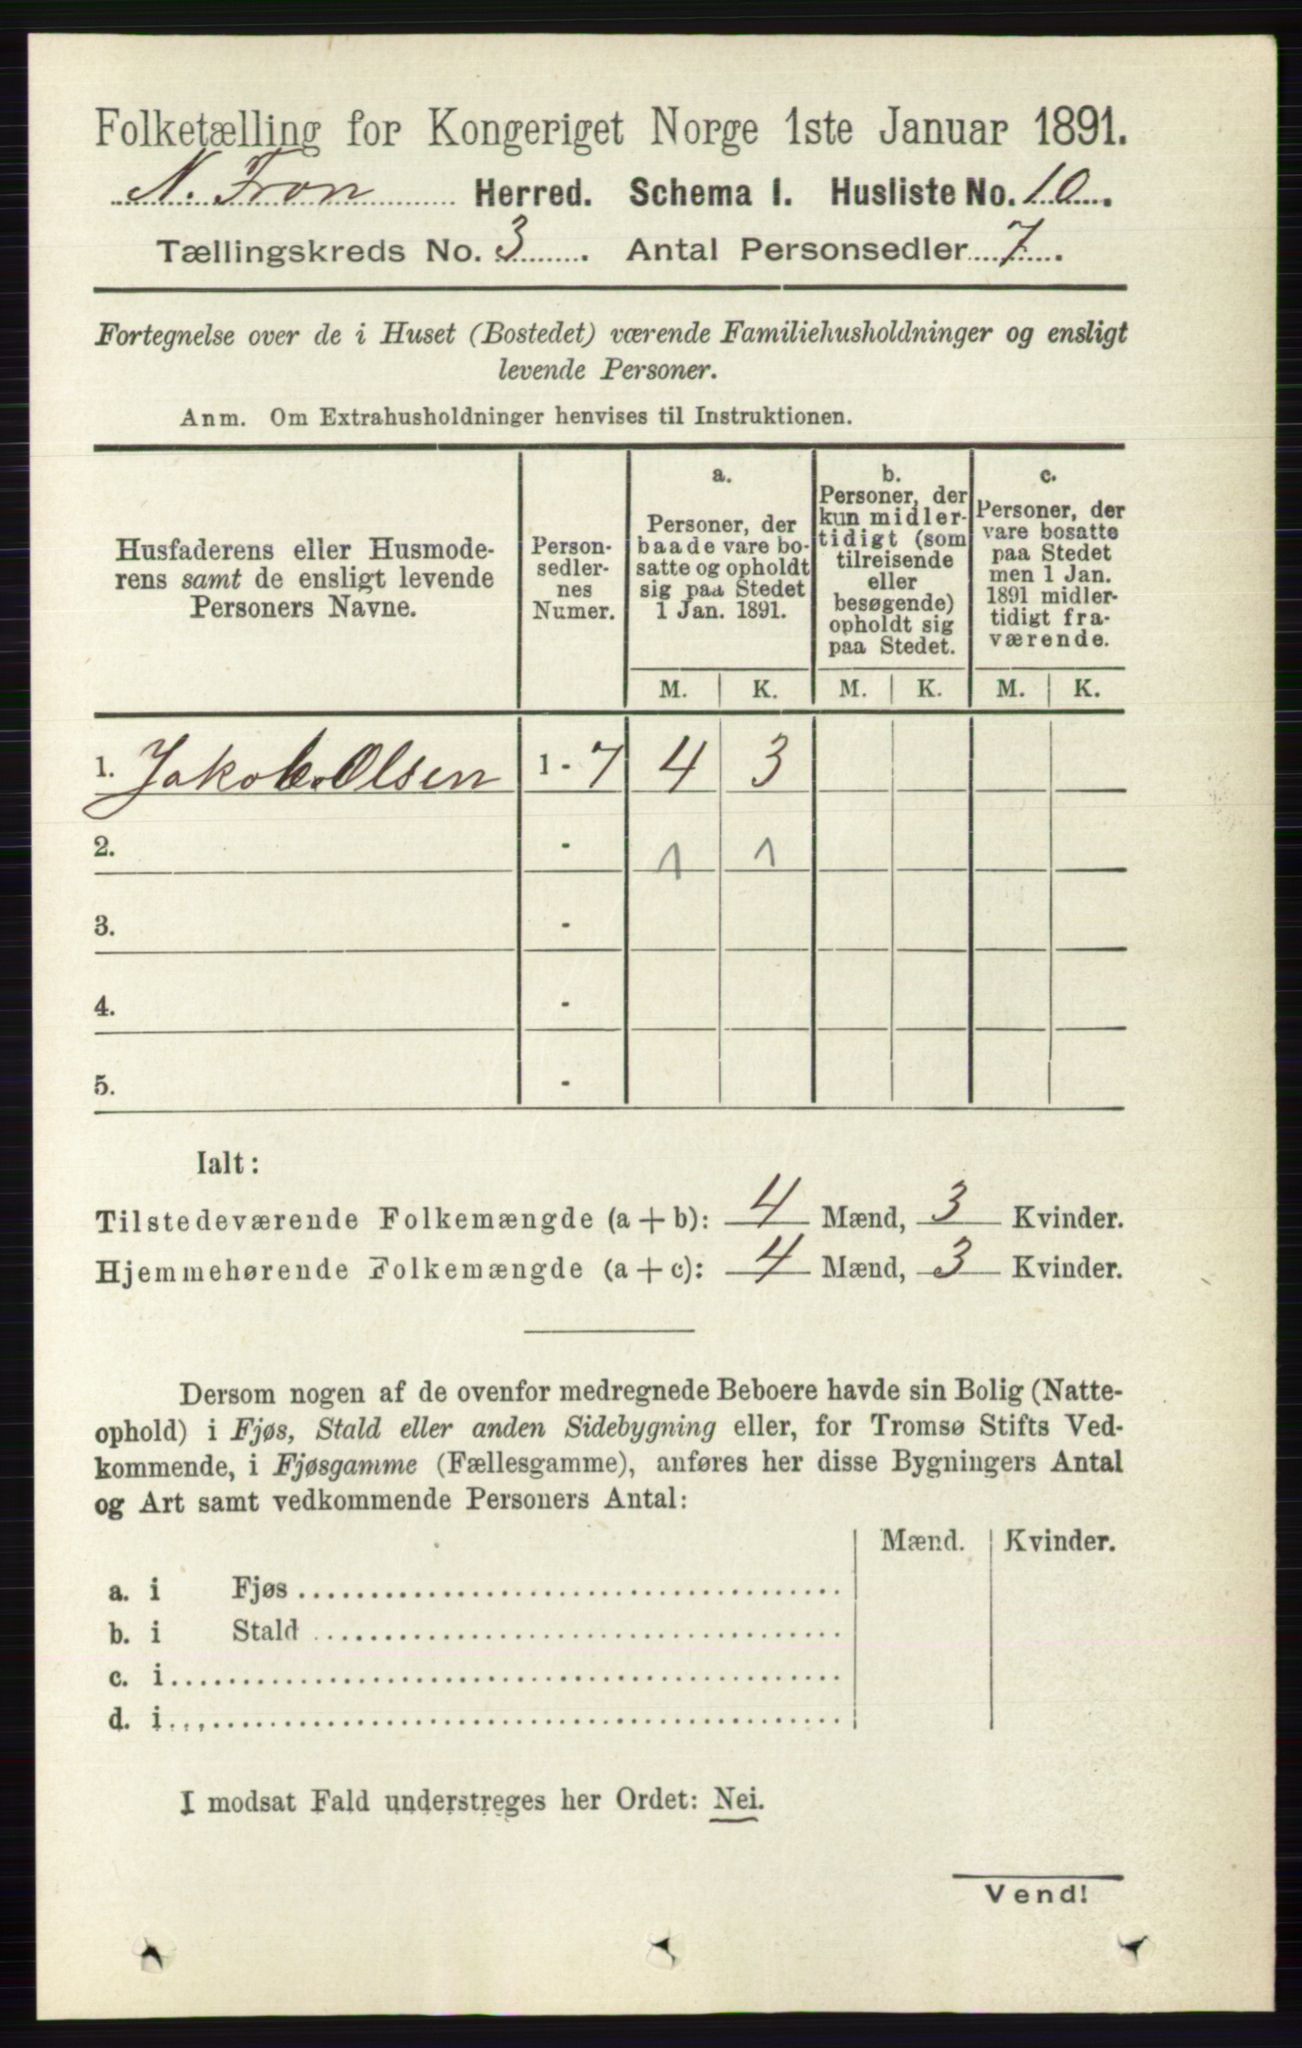 Folketælling for Kongeriget Norge 1ste Januar 1891.
N. Fron Herred. Schema 1. Husliste No. 10.
Tællingskreds No. 3. Antal Personsedler 7.
Fortegnelse over de i Huset (Bostedet) værende Familiehusholdninger og ensligt
levende Personer.
Anm. Om Extrahusholdninger henvises til Instruktionen.
Husfaderens eller Husmode-
rens samt de ensligt levende
Personers Navne.
Person-
sedler-
nes
Numer.
a.
Personer, der
baade vare bo-
satte og opholdt
sig paa Stedet
1 Jan. 1891.
b.
Personer, der
kun midler-
tidigt (som
tilreisende
eller
besøgende)
opholdt sig
paa Stedet.
c.
Personer, der
vare bosatte
paa Stedet
men 1 Jan.
1891 midler-
tidigt fra-
værende.
M. K. M. K. M. K.
1. Jakob Olsen 1 - 7 4 3
2. - 1 1
3. -
4. -
5. -
Ialt:
Tilstedeværende Folkemængde (a + b): 4 Mænd, 3 Kvinder.
Hjemmehørende Folkemængde (a + c): 4 Mænd, 3 Kvinder.
Dersom nogen af de ovenfor medregnede Beboere havde sin Bolig (Natte-
ophold) i Fjøs, Stald eller anden Sidebygning eller, for Tromsø Stifts Ved-
kommende, i Fjøsgamme (Fællesgamme), anføres her disse Bygningers Antal
og Art samt vedkommende Personers Antal:
Mænd. Kvinder.
a. i Fjøs
b. i Stald
c. i
d. i
I modsat Fald understreges her Ordet: Nei.
Vend!